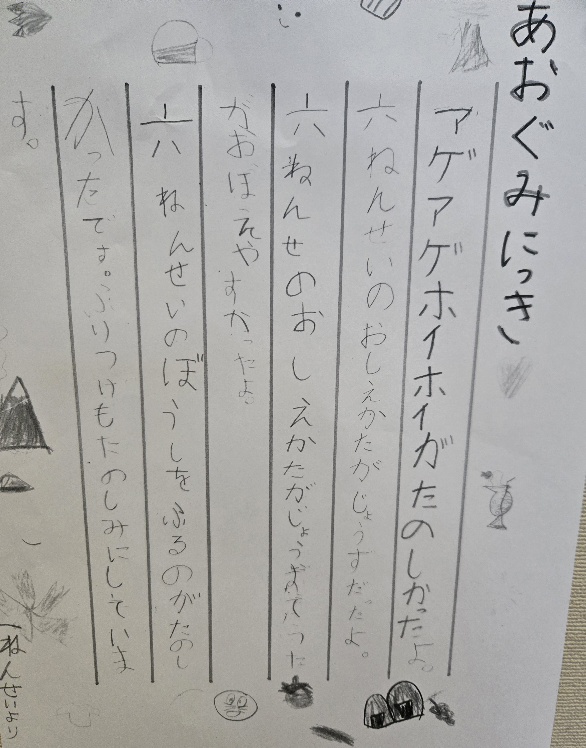 あおぐみにっき
アゲアゲホイホイがたのしかったよ。
六ねんせいのおしえかたがじょうずだったよ。
六ねんせのおしえかたがじょうずでうた
がおぼえやすかったよ。
六ねんせいのぼうしをふるのがたのし
かったです。ふりつけもたのしみにしていま
す。
一ねんせいより